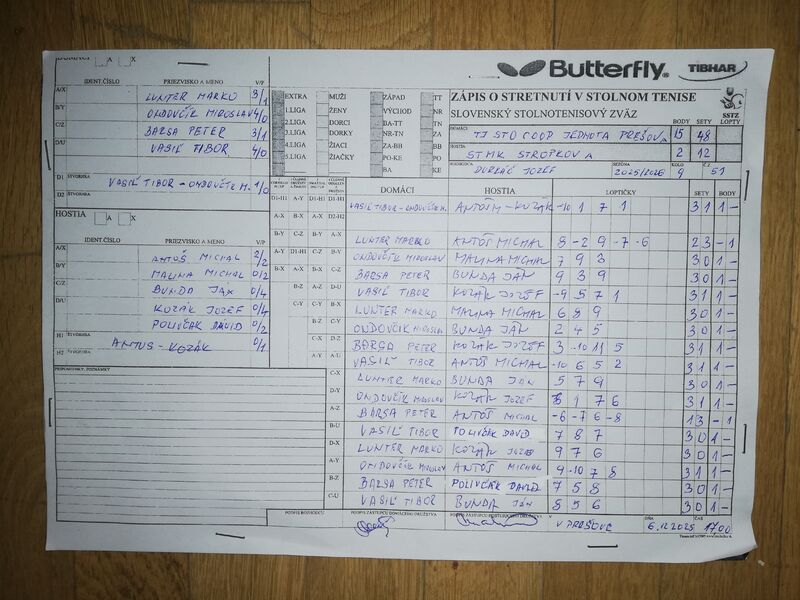 DOMÁCI A X
IDENT.ČÍSLO PRIEZVISKO A MENO V/P
A/X LUNTER MARKO 3/1
B/Y ONDOVČÍK MIROSLAV 4/0
C/Z BARSA PETER 3/1
D/U VASIĽ TIBOR 4/0
D1 ŠTVORHRA VASIĽ TIBOR - ONDOVČÍK M. 1/0
D2
HOSTIA A X
IDENT.ČÍSLO PRIEZVISKO A MENO V/P
A/X ANTOŠ MICHAL 2/2
B/Y MALINA MICHAL 0/2
C/Z BUNDA JÁN 0/4
D/U KOZÁK JOZEF 0/4
POLIVČÁK DAVID 0/2
H1 ŠTVORHRA ANTOŠ - KOZÁK 0/1
H2
PRIPOMIENKY, POZNÁMKY
Butterfly TIBHAR
EXTRA MUŽI ZÁPAD TT
1.LIGA ŽENY VÝCHOD NR
2.LIGA DORCI DA-TT TN
3.LIGA DORKY NR-TN ZA
4.LIGA ŽIACI ZA-BB BB
5.LIGA ŽIAČKY PO-KE PO
BA KE
ZÁPIS O STRETNUTÍ V STOLNOM TENISE
SLOVENSKÝ STOLNOTENISOVÝ ZVÄZ SSTZ
BODY SETY LOPTY
DOMÁCI TJ STO COOP JEDNOTA PREŠOV A 15 48
HOSTIA STMK STROPKOV A 2 12
ROZHODCA DURKÁČ JOZEF SEZÓNA 2025/2026 KOLO 9 Č 51
DOMÁCI HOSTIA LOPTIČKY SETY BODY
VASIĽ TIBOR - ONDOVČÍK M. ANTOŠ M - KOZÁK -10 1 7 1 3 1 1 -
LUNTER MARKO ANTOŠ MICHAL 8 -2 9 -7 -6 2 3 - 1
ONDOVČÍK MIROSLAV MALINA MICHAL 7 9 3 3 0 1 -
BARSA PETER BUNDA JÁN 9 3 9 3 0 1 -
VASIĽ TIBOR KOZÁK JOZEF -9 5 7 1 3 1 1 -
LUNTER MARKO MALINA MICHAL 6 8 9 3 0 1 -
ONDOVČÍK MIROSLAV BUNDA JÁN 2 4 5 3 0 1 -
BARSA PETER KOZÁK JOZEF 3 -10 11 5 3 1 1 -
VASIĽ TIBOR ANTOŠ MICHAL -10 6 5 2 3 1 1 -
LUNTER MARKO BUNDA JÁN 5 7 9 3 0 1 -
ONDOVČÍK MIROSLAV KOZÁK JOZEF 1 7 6 3 1 1 -
BARSA PETER ANTOŠ MICHAL -6 -7 6 -8 1 3 - 1
VASIĽ TIBOR POLIVČÁK DAVID 7 8 7 3 0 1 -
LUNTER MARKO KOZÁK JOZEF 9 7 6 3 0 1 -
ONDOVČÍK MIROSLAV ANTOŠ MICHAL 9 -10 7 8 3 1 1 -
BARSA PETER POLIVČÁK DAVID 7 5 8 3 0 1 -
VASIĽ TIBOR BUNDA JÁN 8 5 6 3 0 1 -
PODPIS ROZHODCU PODPIS ZÁSTUPCU DOMÁCEHO DRUŽSTVA PODPIS ZÁSTUPCU HOSŤUJÚCEHO DRUŽSTVA V DŇA ČAS
V PREŠOVE 6.12.2025 17,00